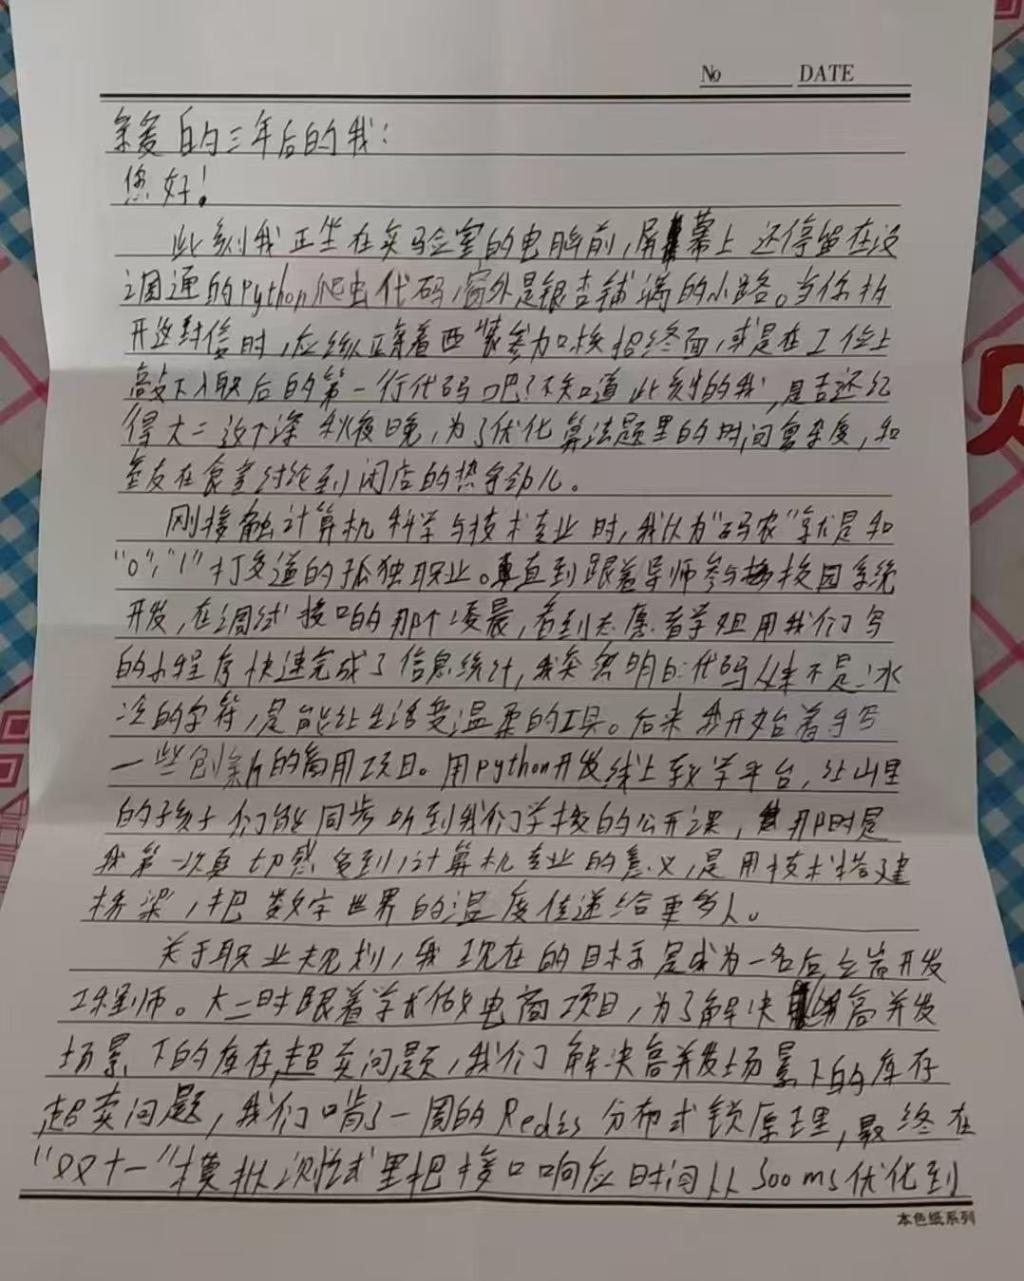 No DATE
亲爱的三年后的我：
您好！
此刻我正坐在实验室的电脑前，屏幕上还停留在没
调通的Python爬虫代码，窗外是银杏铺满的小路。当你拆
开这封信时，应该正穿着西装参加校招终面，或是在工位上
敲下入职后的第一行代码吧？不知道此刻的我，是否还记
得大二这个深秋夜晚，为了优化算法题里的时间复杂度，和
室友在食堂讨论到闭店的热乎劲儿。
刚接触计算机科学与技术专业时，我以为“码农”就是和
“0”，“1”打交道的孤独职业。直到跟着导师参与校园系统
开发，在调试接口的那个凌晨，看到志愿者学姐用我们写
的小程序快速完成了信息统计，我突然明白：代码从来不是冰
冷的字符，是能让生活变温柔的工具。后来我开始着手写
一些创新的商用项目。用python开发线上教学平台，让山里
的孩子们能同步听到我们学校的公开课，那时是
我第一次真切感受到计算机专业的意义，是用技术搭建
桥梁，把数字世界的温度传递给更多人。
关于职业规划，我现在的目标是成为一名后端开发
工程师。大二时跟着学长做电商项目，为了解决高并发
场景下的库存超卖问题，我们解决高并发场景下的库存
超卖问题，我们啃了一周的Redis分布式锁原理，最终在
“双十一”模拟测试里把接口响应时间从500ms优化到
本色纸系列